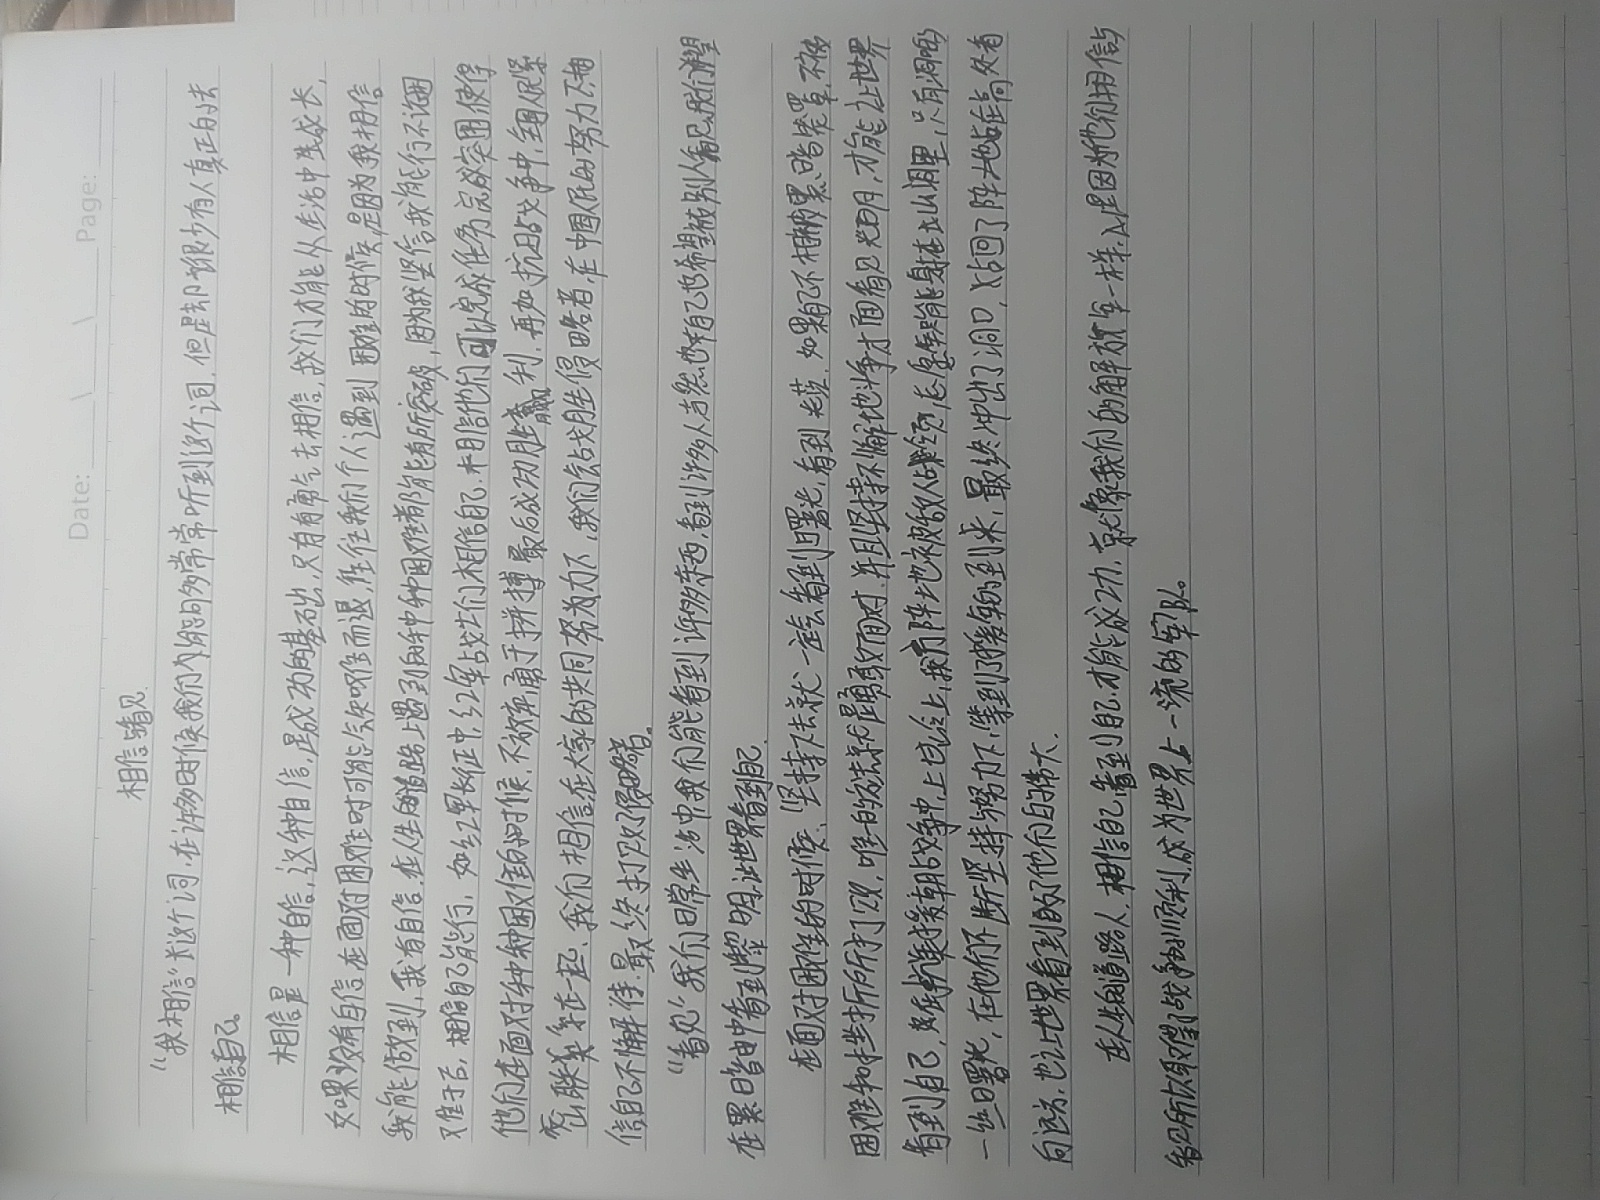 Date: \ \ Page:
相信 看见
“我相信”长这个词,在许多时候我们内能的多常常听到这个词,但是却很少有人真正的去
相信自己。
相信是一种自信,这种自信,是成功的基础,只有勇气去相信,我们才能从生活中生成长,
如果没有自信在面对困难时可能会知难而退,往往我们个人遇到困难的时候,是因为我相信
我能做到,我有自信,在人生的道路上遇到的种种困难都能有所突破,因为我坚信我能行不论困
难于否,相信自己能行,如红军长征中,红军战士们相信自己,相信他们可以完成任务完成突围使得
他们在面对种种困难的时候,不放弃勇于拼搏最后成功胜赢利,再如抗日战争中,全国人民紧
密联系在一起,我们相信,在大家的共同努力下,我们会战胜侵略者,在中国人民的努力不相
信自己不懈怠,最终打败了侵略者。
“看见”我们日常生活中我们能看到许多东西,看到许多人,当然也有自己也希望被别人看见,我们渴望
在黑暗中看到黎明,让世界看到自己
在面对困难的时候,坚持下去就一定会看到曙光,看到光芒,如果自己不相被黑暗笼罩,不被
困难和挫折所打败,唯一的方法就是勇敢面对,并且坚持不懈地斗争才面看见光明,才能让世界
看到自己,如抗美援朝战争中,上甘岭上,我方阵地被敌人占领,志愿军只能身在山洞里,只有洞口的
一丝曙光,在他们不断坚持努力下,等到了援军的到来,最终冲出了洞口,夺回了阵地站在高处看
向远方,也让世界看到了他们的伟大.
在人生的道路人,相信自己,看到自己,才能成功,就像我们的解放军一样,是因为他们相信与
看见所以取得了战争的胜利,成为世界上一流的军队。